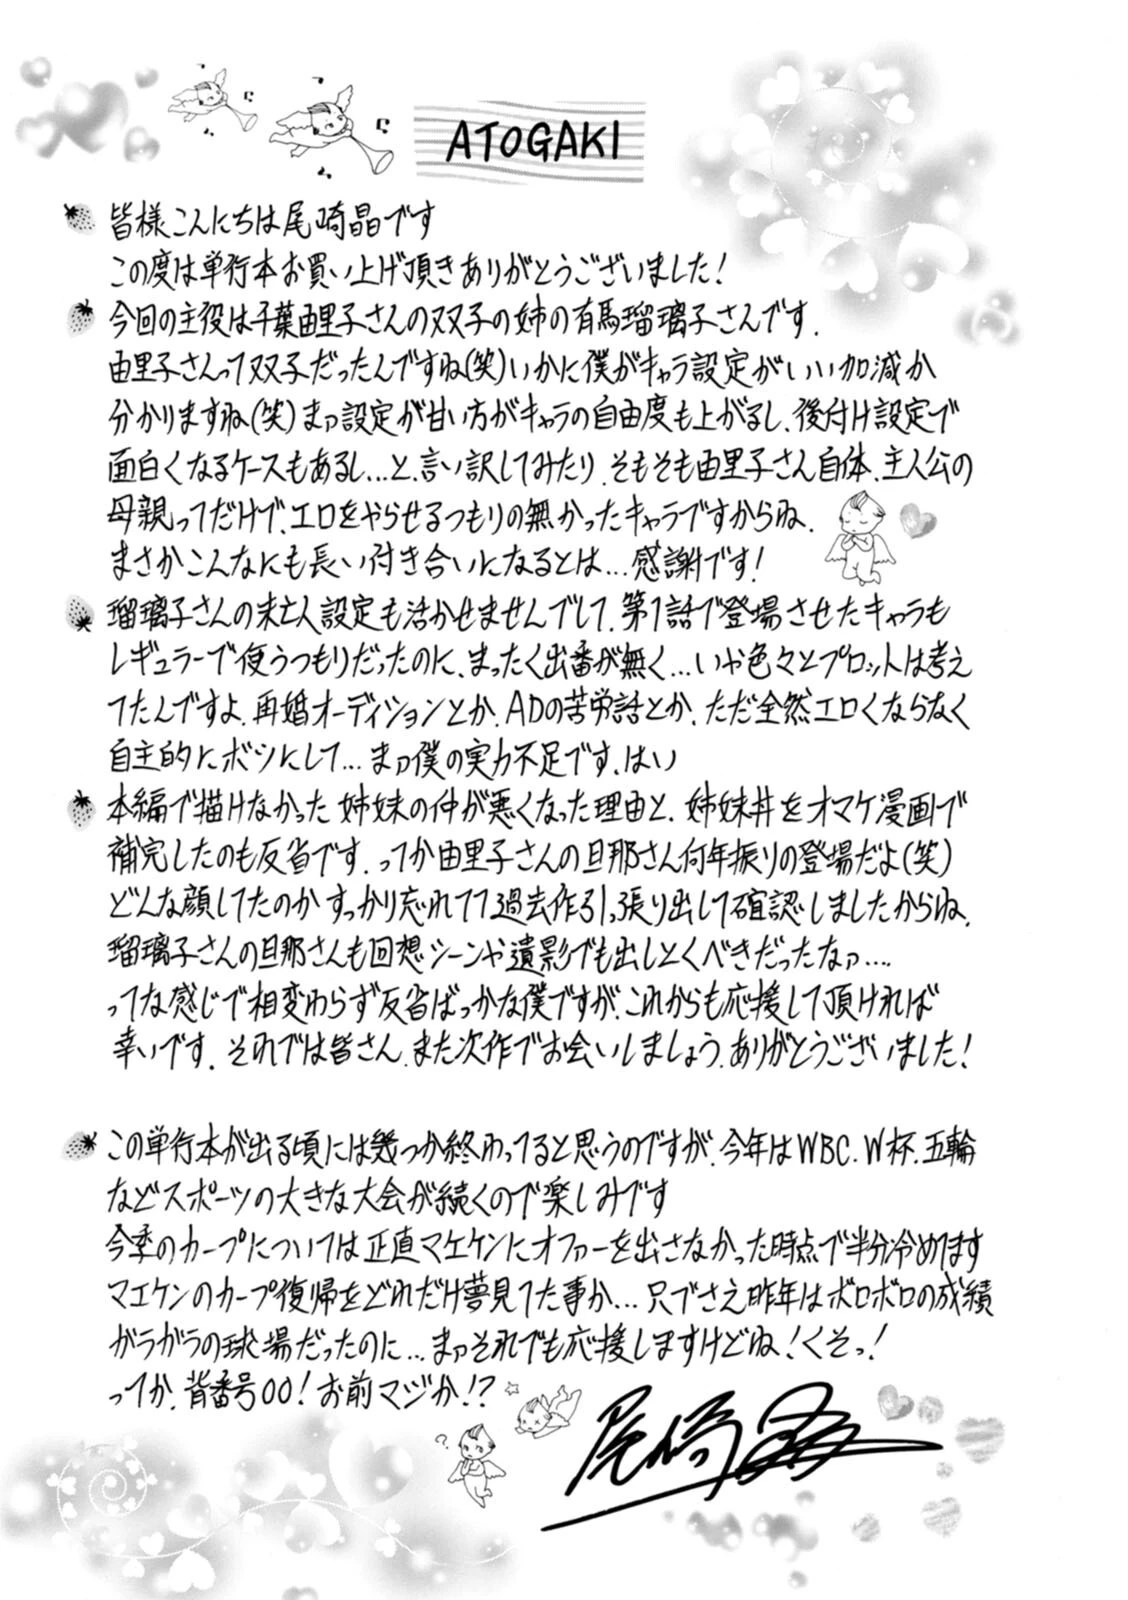 ATOGAKI
皆様こんにちは尾崎晶です
この度は単行本お買い上げ頂きありがとうございました!
今回の主役は千葉由里子さんの双子の姉の有馬瑠璃子さんです.
由里子さんって双子だったんですね(笑)いかに僕がキャラ設定がいい加減か
分かりますね(笑)まァ設定が甘い方がキャラの自由度も上がるし、後付け設定で
面白くなるケースもあるし…と、言い訳してみたり、そもそも由里子さん自体、主人公の
母親ってだけで、エロをやらせるつもりの無かったキャラですからね、
まさかこんなにも長い付き合いになるとは…感謝です!
瑠璃子さんの未亡人設定も活かせませんでして、第1話で登場させたキャラも
レギュラーで使うつもりだったのに、まったく出番が無く…いや色々とプロットは考え
てたんですよ、再婚オーディションとか、ADの苦労話とか、ただ全然エロくならなく
自主的にボツにして…まァ僕の実力不足です、はい
本編で描けなかった姉妹の仲が悪くなった理由と、姉妹丼をオマケ漫画で
補完したのも反省です、ってか由里子さんの旦那さん何年振りの登場だよ(笑)
どんな顔してたのかすっかり忘れてて過去作引っ張り出して確認しましたからね、
瑠璃子さんの旦那さんも回想シーンや遺影でも出しとくべきだったなァ…
ってな感じで相変わらず反省ばっかな僕ですが、これからも応援して頂ければ
幸いです. それでは皆さん、また次作でお会いしましょう、ありがとうございました!
この単行本が出る頃には幾つか終わってると思うのですが、今年はWBC、W杯、五輪
などスポーツの大きな大会が続くので楽しみです
今季のカープについては正直マエケンにオファーを出さなかった時点で半分冷めてます
マエケンのカープ復帰をどれだけ夢見てた事か…只でさえ昨年はボロボロの成績
ガラガラの球場だったのに…まァそれでも応援しますけどね!くそっ!
ってか、背番号00!お前マジか!?
尾崎晶